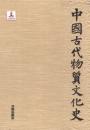 中國古代物質文化史